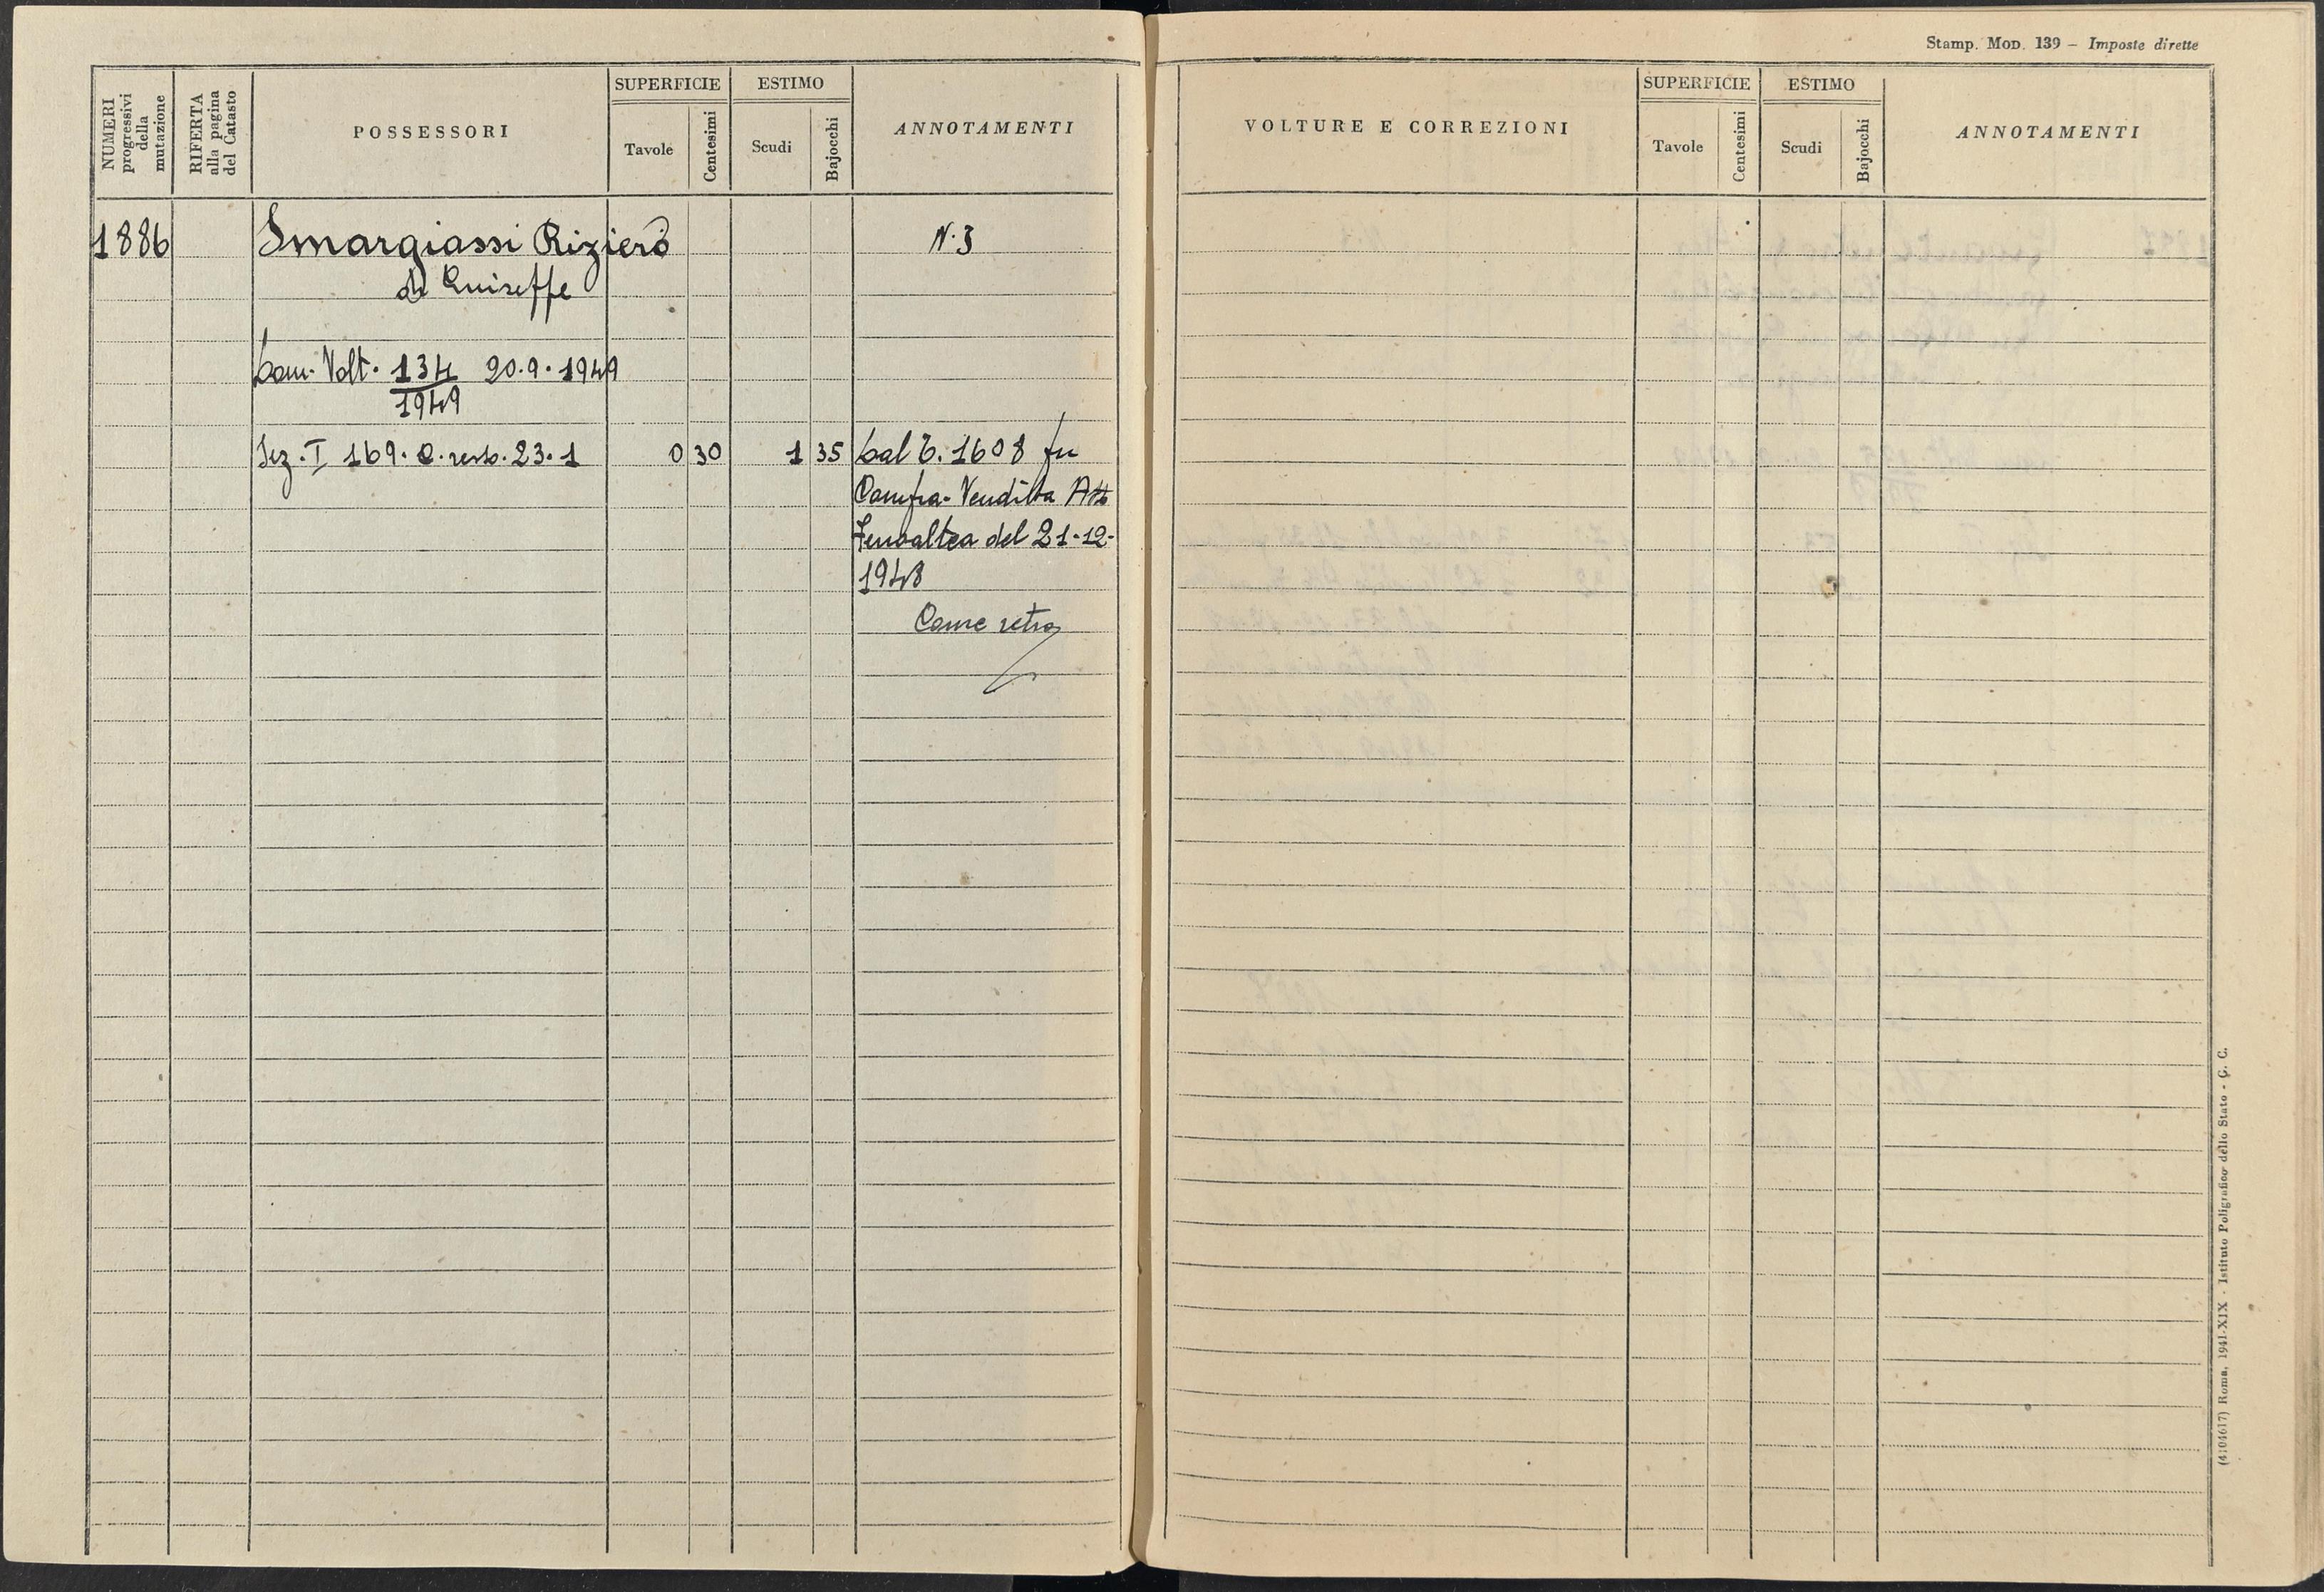 NUMERI progressivi della mutazione
RIFERTA alla pagina del Catasto
POSSESSORI
SUPERFICIE
Tavole
Centesimi
ESTIMO
Scudi
Bajocchi
ANNOTAMENTI
1886 Smargiassi Riziero N. 3
di Giuseppe
Dom. Volt. 134 20.9.1949
1949
Sez. I 169. 23.1 0 30 1 35 Dal 1608 fu
Compra-Vendita Atto
Fenoaltea del 21-12-
1948
Come retro
Stamp. Mod. 139 – Imposte dirette
VOLTURE E CORREZIONI
SUPERFICIE
Tavole
Centesimi
ESTIMO
Scudi
Bajocchi
ANNOTAMENTI
(4104617) Roma, 1941-XIX - Istituto Poligrafico dello Stato - G. C.